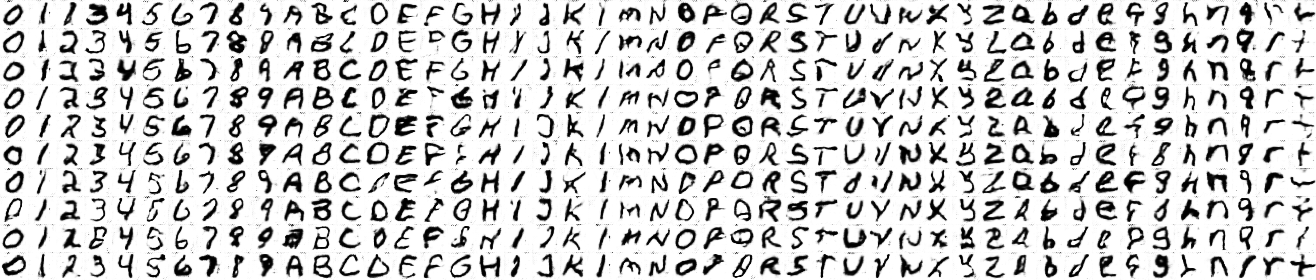 0 1 1 3 4 5 6 7 8 9 A B C D E F G H I J K l m N O P Q R S T U V N X Y Z a b d e f g h n q r t
0 1 2 3 4 5 6 7 8 9 A B C D E F G H I J K l m N O P Q R S T U V N X Y Z a b d e f g h n q r t
0 1 2 3 4 5 6 7 8 9 A B C D E F G H I J K l m N O P Q R S T U V N X Y Z a b d e f g h n q r t
0 1 2 3 4 5 6 7 8 9 A B C D E F G H I J K l m N O P Q R S T U V N X Y Z a b d e f g h n q r t
0 1 2 3 4 5 6 7 8 9 A B C D E F G H I J K l m N O P Q R S T U V N X Y Z a b d e f g h n q r t
0 1 2 3 4 5 6 7 8 9 A B C D E F H I J K l m N O P Q R S T U V N X Y Z a b d e f g h n q r t
0 1 2 3 4 5 6 7 8 9 A B C E F G H I J K l m N D P Q R S T U N X Y Z a b d e f g h n q r t
0 1 2 3 4 5 6 7 8 9 A B C D E F G H I J K l m N O P Q R S T U V N X Y Z a b d e f g h n q r t
0 1 2 8 4 5 6 7 8 9 B C D E F G H I J K l m N O P Q R S T U V N X Y Z a b d e f g h n q r t
0 1 2 3 4 5 6 7 8 9 A B C D E F G H I J K l m N O P Q R S T U V N X Y Z a b d e f g h n q r t